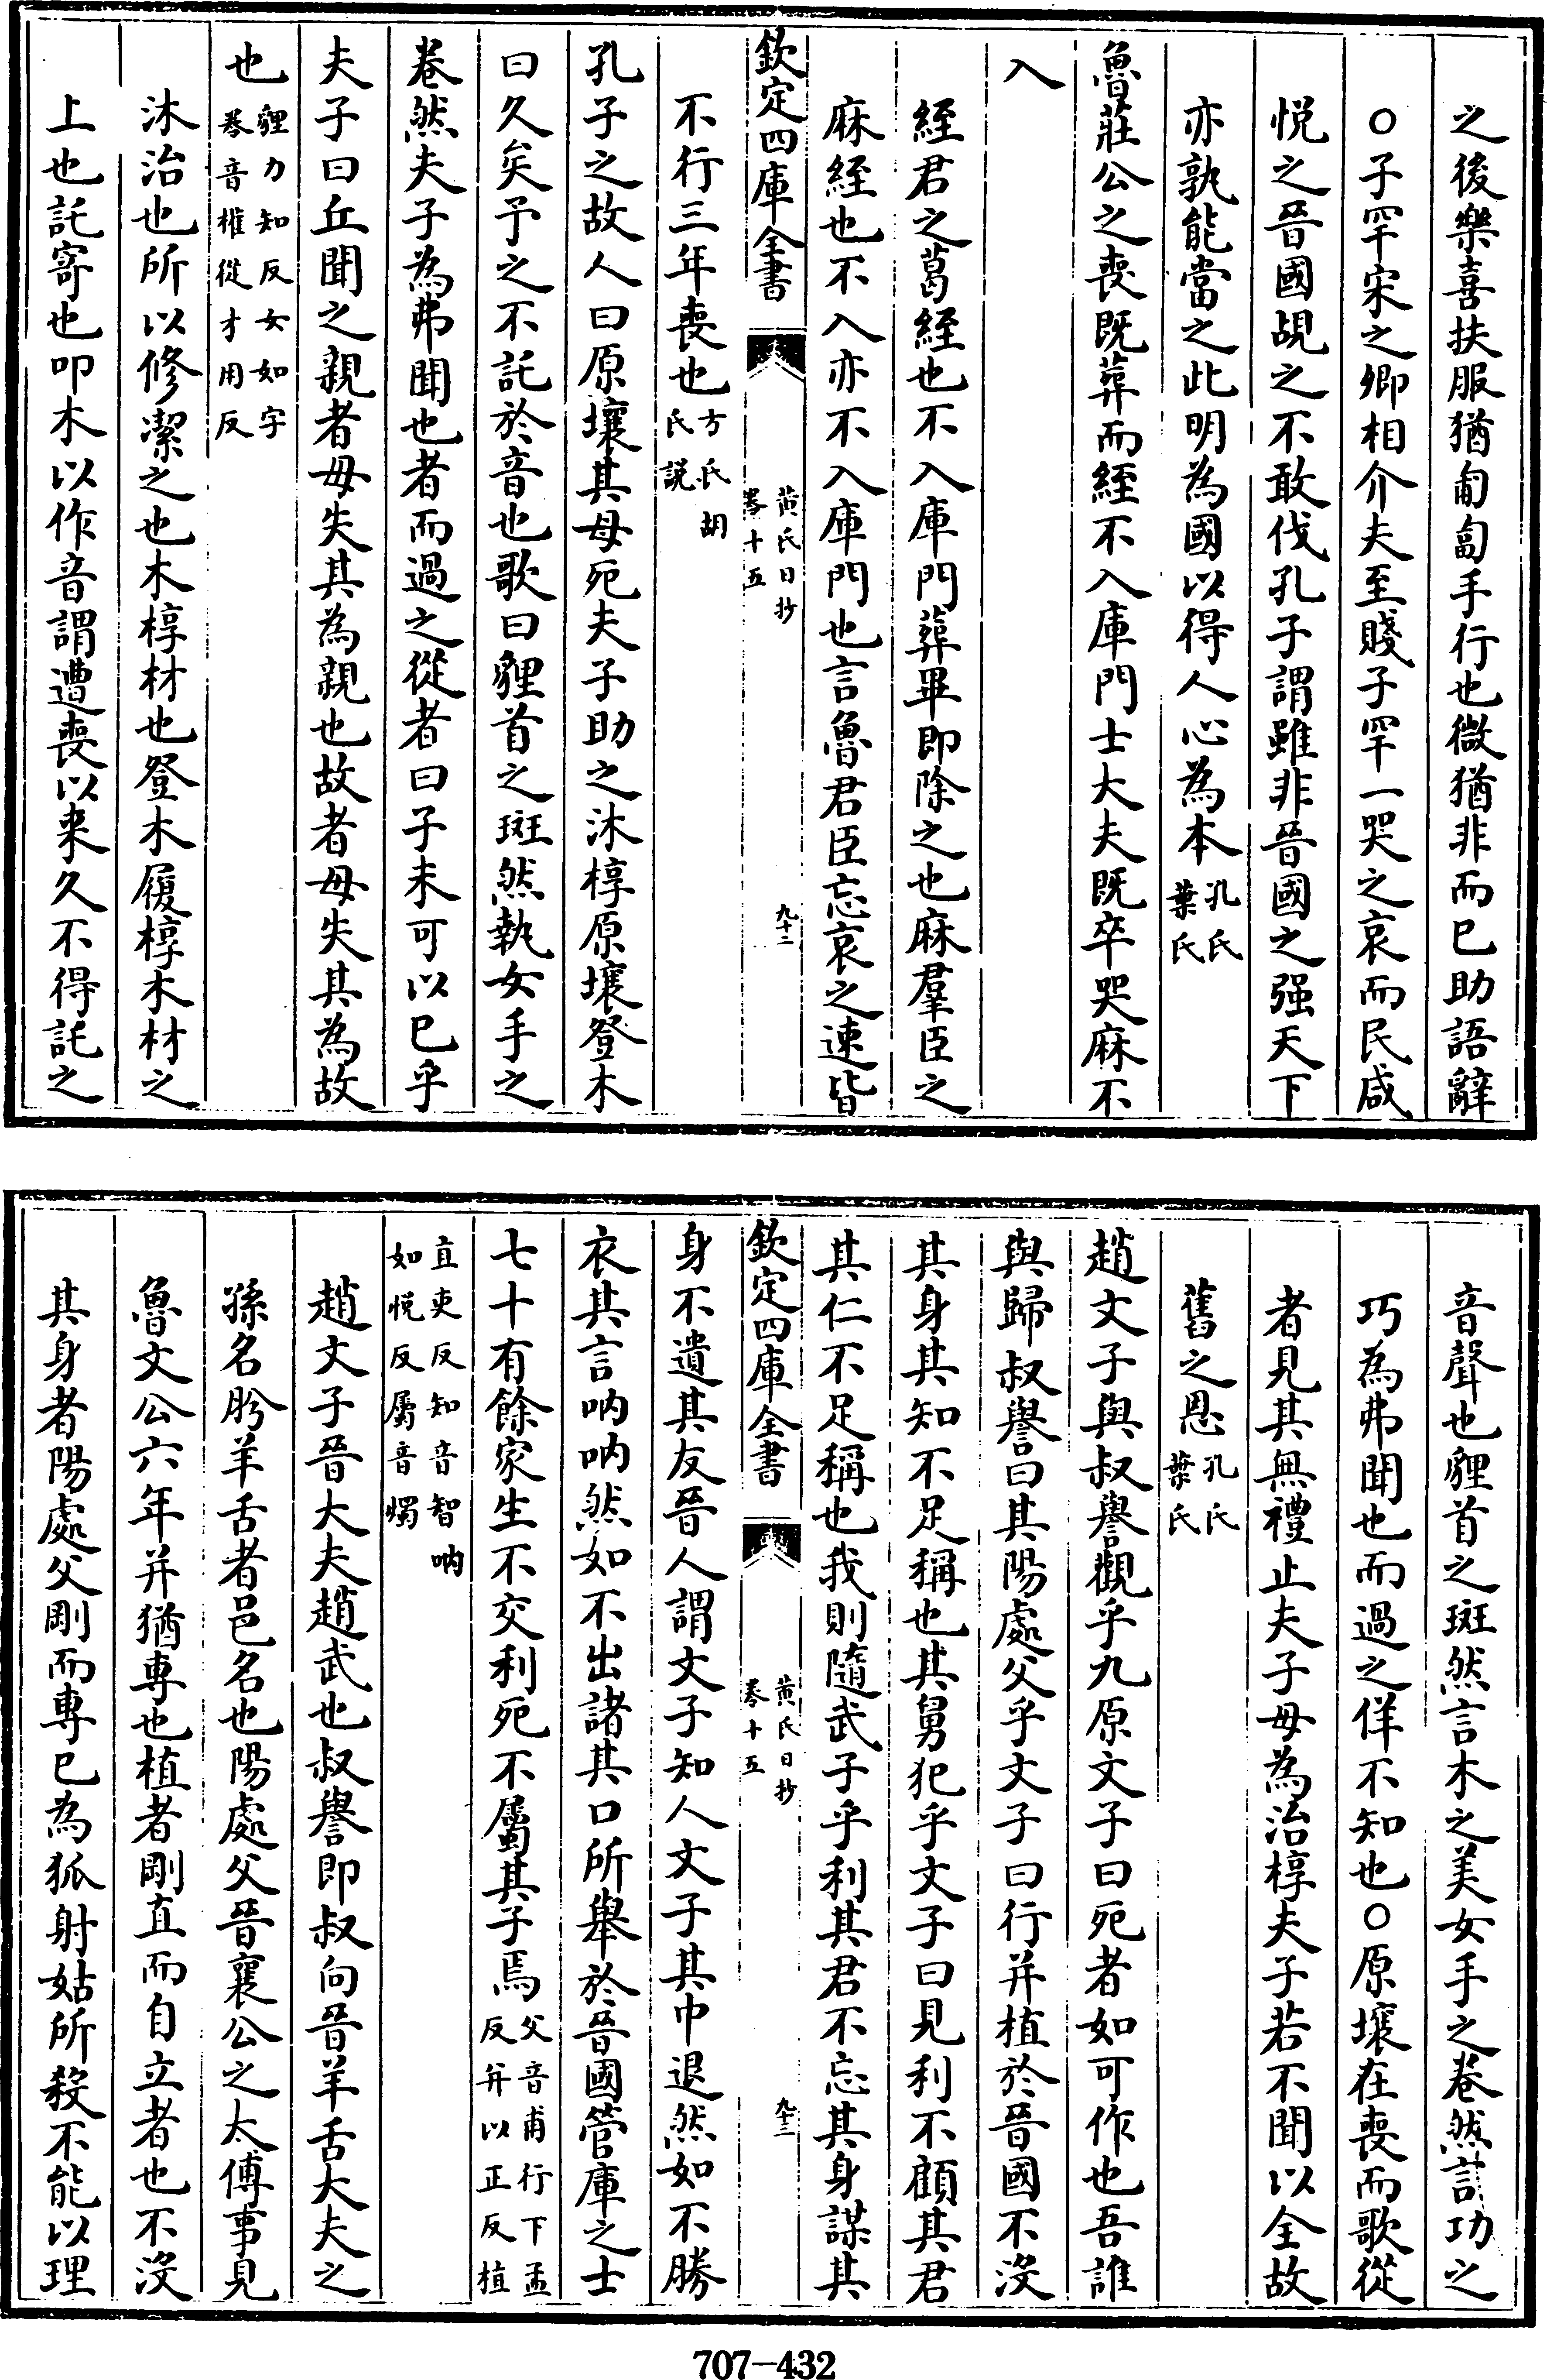 之後樂喜扶服猶匍匐手行也微猶非而巳助語辭
○子罕宋之卿相介夫至賤子罕一哭之哀而民咸
悦之晉國覘之不敢伐孔子謂雖非晉國之强天下
亦孰能當之此明為國以得人心為本孔氏葉氏
魯莊公之喪既葬而絰不入庫門士大夫既卒哭麻不
入
絰君之葛絰也不入庫門葬畢即除之也麻羣臣之
麻絰也不入亦不入庫門也言魯君臣忘哀之速皆
欽定四庫全書 黄氏日抄卷十五 九十二
不行三年喪也方氏胡氏説
孔子之故人曰原壤其母死夫子助之沐椁原壤登木
曰久矣予之不託於音也歌曰貍首之斑然執女手之
卷然夫子為弗聞也者而過之從者曰子未可以巳乎
夫子曰丘聞之親者毋失其為親也故者毋失其為故
也貍力知反女如字卷音權從才用反
沐治也所以修潔之也木椁材也登木履椁木材之
上也託寄也叩木以作音謂遭喪以来久不得託之
音聲也貍首之斑然言木之美女手之卷然言功之
巧為弗聞也而過之佯不知也○原壤在喪而歌從
者見其無禮止夫子毋為治椁夫子若不聞以全故
舊之恩孔氏葉氏
趙文子與叔譽觀乎九原文子曰死者如可作也吾誰
與歸叔譽曰其陽處父乎文子曰行并植於晉國不沒
其身其知不足稱也其舅犯乎文子曰見利不顧其君
其仁不足稱也我則隨武子乎利其君不忘其身謀其
欽定四庫全書 黄氏日抄卷十五 九十三
身不遺其友晉人謂文子知人文子其中退然如不勝
衣其言呐呐然如不出諸其口所舉於晉國管庫之士
七十有餘家生不交利死不屬其子焉父音甫行下孟反并以正反植
直吏反知音智呐如悦反屬音燭
趙文子晉大夫趙武也叔譽即叔向晉羊舌大夫之
孫名肸羊舌者邑名也陽處父晉襄公之太傅事見
魯文公六年并猶專也植者剛直而自立者也不沒
其身者陽處父剛而專巳為狐射姑所殺不能以理
707—432